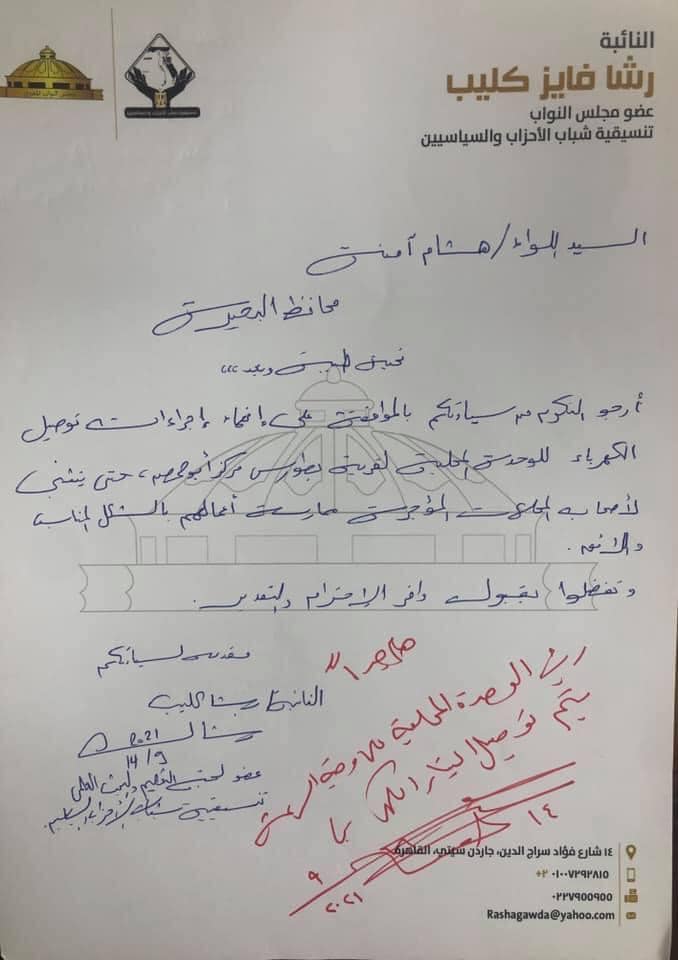 النائبة
رشا فايز كليب
عضو مجلس النواب
تنسيقية شباب الأحزاب والسياسيين
السيد اللواء / هشام آمنة
محافظ البحيرة
تحية طيبة وبعد ،،،
أرجو التكرم من سيادتكم بالموافقة على إنهاء إجراءات توصيل
الكهرباء للوحدة المحلية لقرية بطورس مركز أبو حمص، حتى يتثنى
لأصحاب المحلات المؤجرة ممارسة أعمالهم بالشكل المناسب
واللائق.
وتفضلوا بقبول وافر الاحترام والتقدير.
مقدمه لسيادتكم
النائبة/ رشا كليب
رشا كليب
2021
14/9
عضو لجنة التعليم والبحث العلمي
تنسيقية شباب الأحزاب والسياسيين
الوحدة المحلية
يتم توصيل التيار الكهربا
١٤
٩
٢٠٢١
١٤ شارع فؤاد سراج الدين، جاردن سيتي، القاهرة
+٢ ٠١٠٠٧٢٩٢٨١٥
٠٢٢٧٩٥٥٩٥٥
Rashagawda@yahoo.com